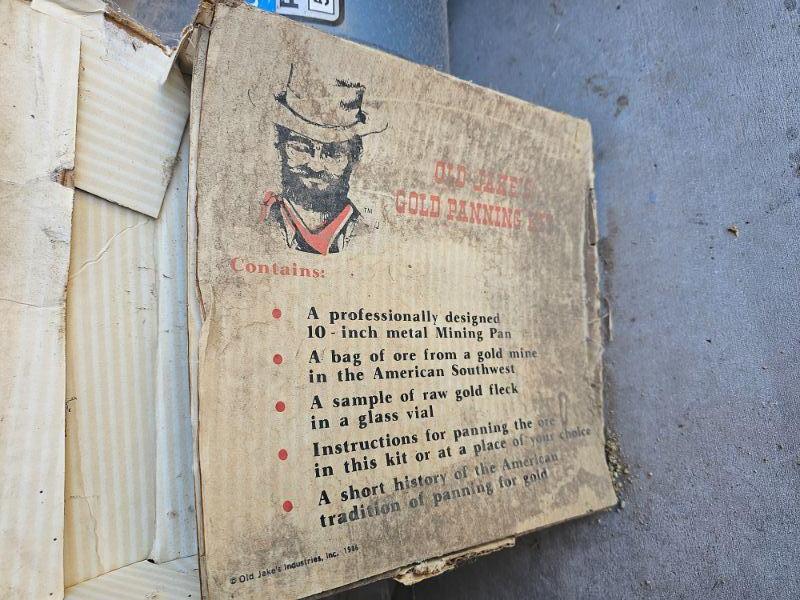 OLD JAKE'S
GOLD PANNING KIT
TM
Contains:
A professionally designed
10 - inch metal Mining Pan
A bag of ore from a gold mine
in the American Southwest
A sample of raw gold fleck
in a glass vial
Instructions for panning the ore
in this kit or at a place of your choice
A short history of the American
tradition of panning for gold
© Old Jake's Industries, Inc. 1986